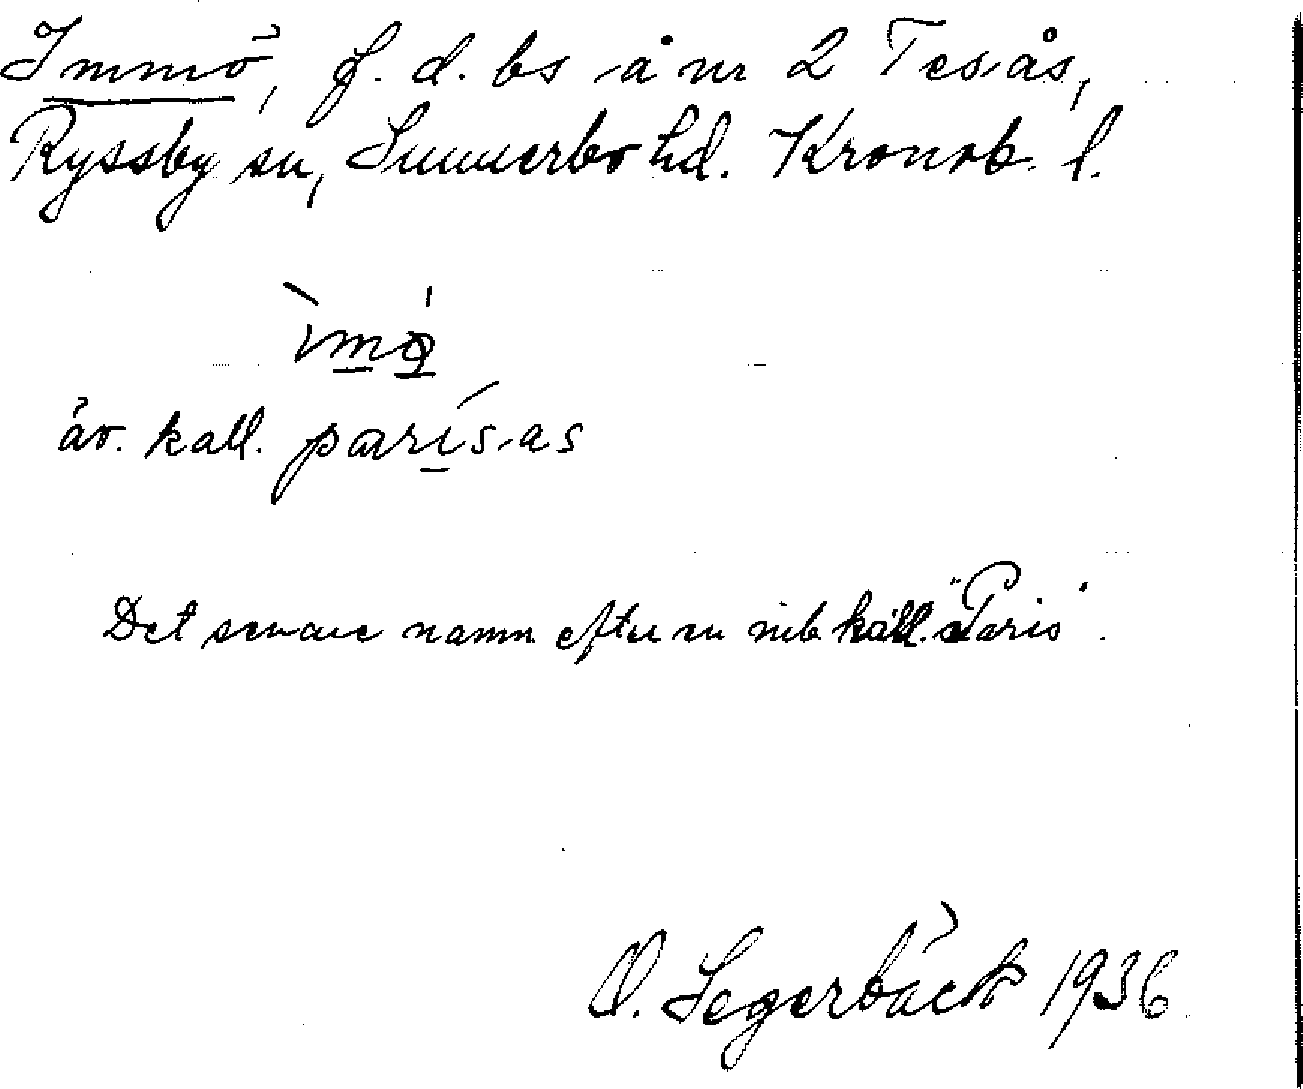 Immö, f. d. bs å nr 2 Tesås,
Ryssby sn, Sunnerbo hd. Kronob. l.
ìmǿ
äv. kall. parísas
Det senare namn efter en inb. kall. "Paris".
O. Segerbäck 1936